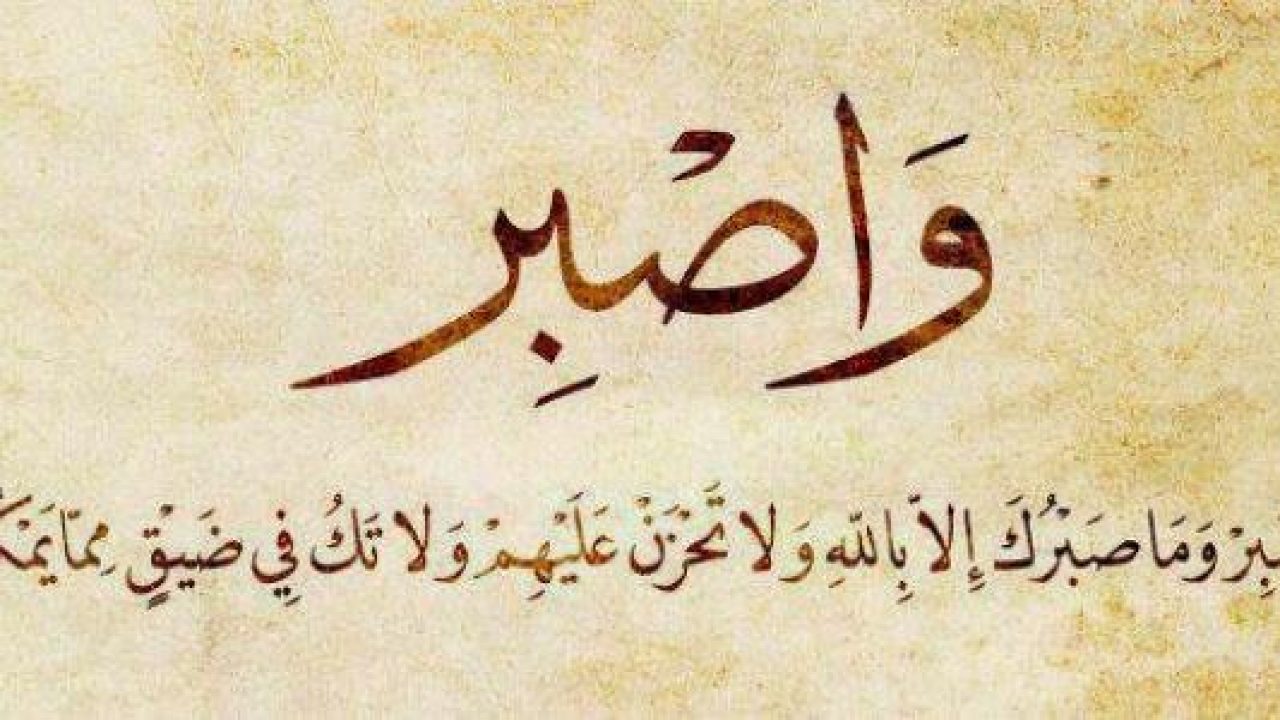 وَاصْبِر
بِرْ وَمَا صَبْرُكَ إِلاَّ بِاللّهِ وَلاَ تَحْزَنْ عَلَيْهِمْ وَلاَ تَكُ فِي ضَيْقٍ مِمَّا يَمْكُ